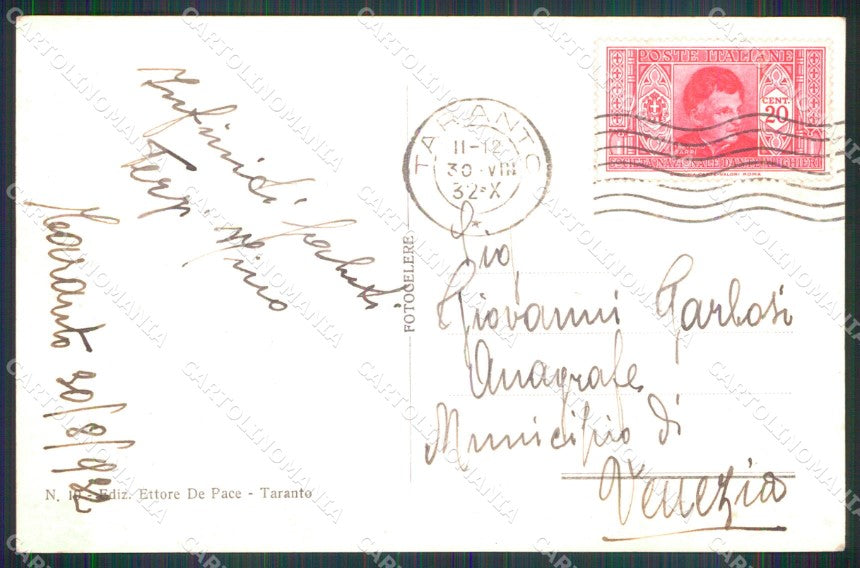 POSTE ITALIANE
CENT.
20
SOCIETÀ NAZIONALE DANTE ALIGHIERI
TARANTO
11-12
30·VIII
32·X
Infiniti saluti
Nino
Taranto 30/8/932
FOTOCELERE
Sig,
Giovanni Garbosi
Anagrafe
Municipio di
Venezia
N. 10 - Ediz. Ettore De Pace - Taranto
CARTOLINOMANIA